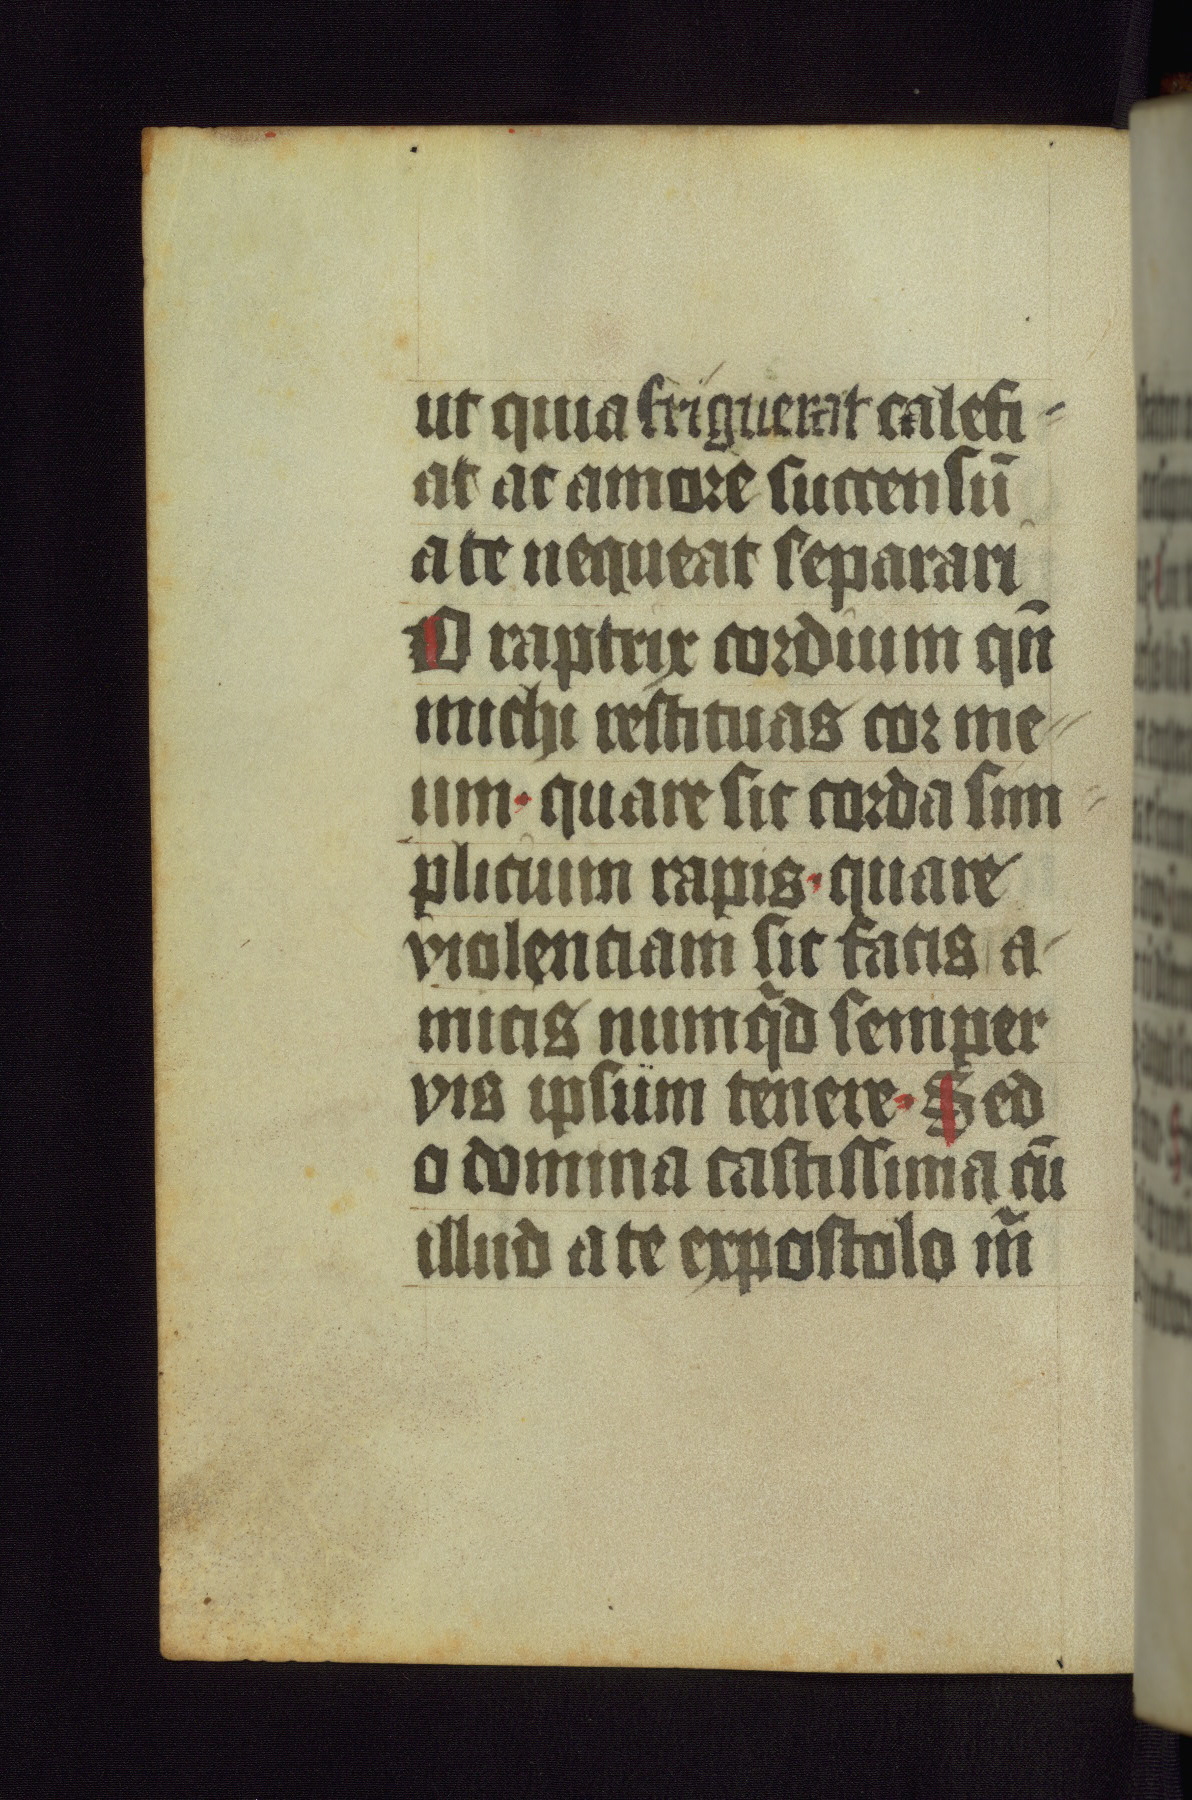 ut quia friguerat calefi-
at ac amore succensū
a te nequeat separari
O raptrix cordium qn̄
michi restituas cor me-
um· quare sic corda sim-
plicium rapis· quare
violentiam sic facis a-
micis numq̄d semper
vis ipsum tenere· Sed
o domina castissima cū
illud a te expostolo m̄